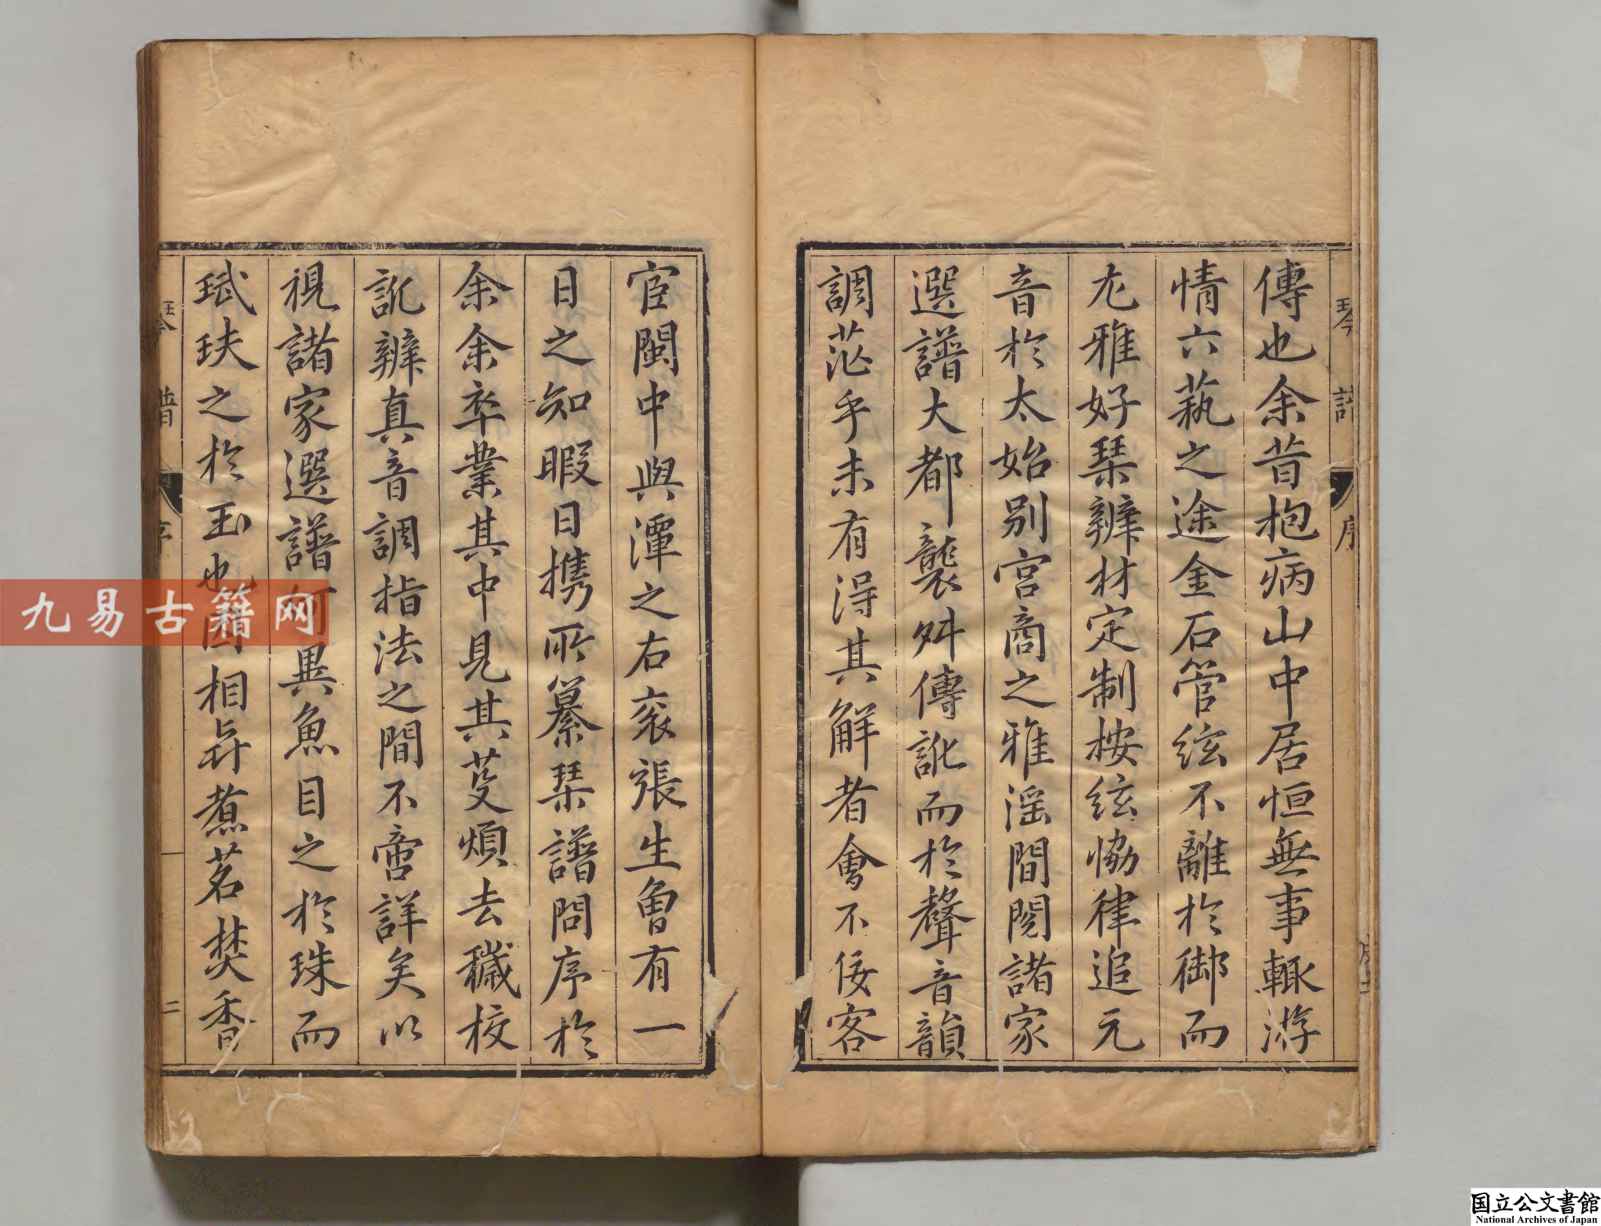 傳也余昔抱病山中居恒無事輙游
情六蓺之途金石管絃不離於御而
尤雅好琹辨材定制按絃恊律追元
音於太始别宮商之雅滛間閱諸家
選譜大都襲舛傳訛而於聲音韻
調茫乎未有得其解者會不佞客
宦閩中與潭之右衮張生魯有一
日之知暇日携所纂琹譜問序於
余余卒業其中見其芟煩去穢校
訛辨真音調指法之間不啻詳矣以
視諸家選譜何異魚目之於珠而
珷玞之於玉也因相與煮茗焚香
琴譜
序
琴譜
序
二
九易古籍网
国立公文書館
National Archives of Japan